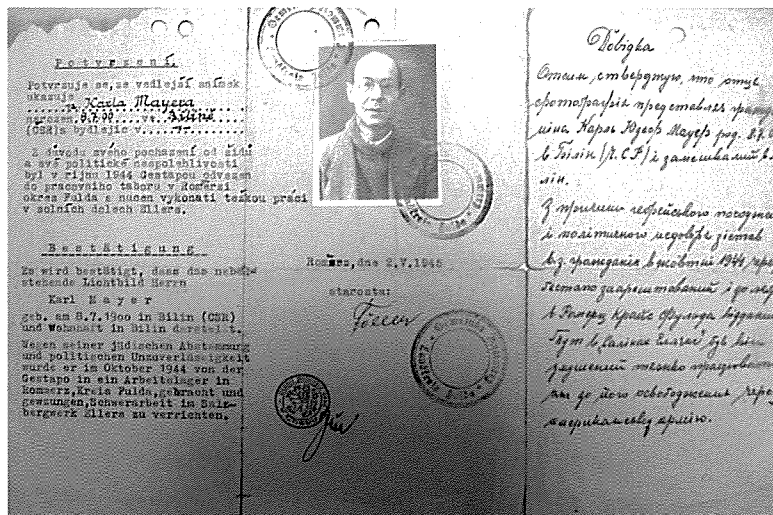 Potvrzení.
Potvrzuje se, že vedlejší snímek
ukazuje
p. Karla Mayera
narozen 8.7.00 ve Bílině
(ČSR) a bydlejic v
Z důvodu svého pochazení od židů
a své politické nespolehlivosti
byl v říjnu 1944 Gestapou odvezen
do pracovního taboru v Romerzi
okres Fulda a nucen vykonati težkou práci
v solních dolech Ellers.
Bestätigung
Es wird bestätigt, dass das neben-
stehende Lichtbild Herrn
Karl Mayer
geb. am 8.7.1900 in Bilin (CSR)
und Wohnhaft in Bilin darstellt.
Wegen seiner jüdischen Abstammung
und politischen Unzuverlässigkeit
wurde er im Oktober 1944 von der
Gestapo in ein Arbeitslager in
Romerz, Kreis Fulda, gebracht und
gezwungen, Schwerarbeit im Salz-
bergwerk Ellers zu verrichten.
Romerz, dne 2.V.1945
starosta:
Довідка
Отсим стверджую, що отце
фотографія представляє
Карль Юзеф Маєр род. 8.7.
в Білін (Ч.С.Р) і замешкалий в
лін.
З причини
і політичного недовіря зістав
в жовтні 1944 через
Гестапо заарештований і до
в Ромерц
Тут в був він
змушений тяжко працювати
аж до його освободження через
американську армію.